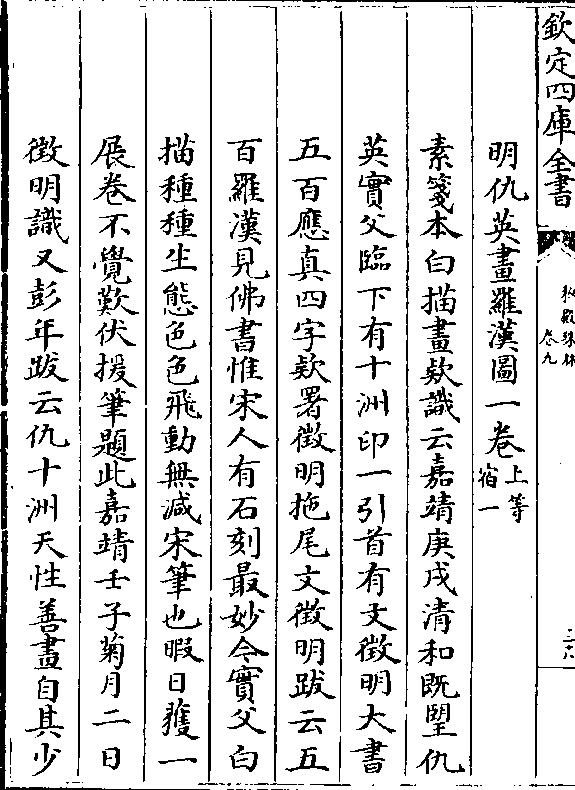 欽定四庫全書
秘殿珠林
卷九
明仇英畫羅漢圖一卷上等
宿一
素箋本白描畫欵識云嘉靖庚戌清和既朢仇
英實父臨下有十洲印一引首有文徵明大書
五百應真四字欵署徵明拖尾文徵明跋云五
百羅漢見佛書惟宋人有石刻最妙今實父白
描種種生態色色飛動無減宋筆也暇日獲一
展卷不覺歎伏援筆題此嘉靖壬子菊月二日
徵明識又彭年跋云仇十洲天性善畫自其少